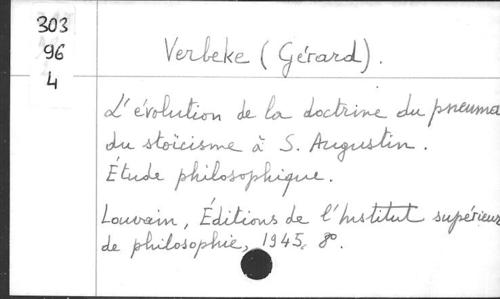 303
96
4
Verbeke (Gérard).
L'évolution de la doctrine du pneuma
du stoïcisme à S. Augustin.
Étude philosophique.
Louvain, Éditions de l'Institut supérieur
de philosophie, 1945. 8º.